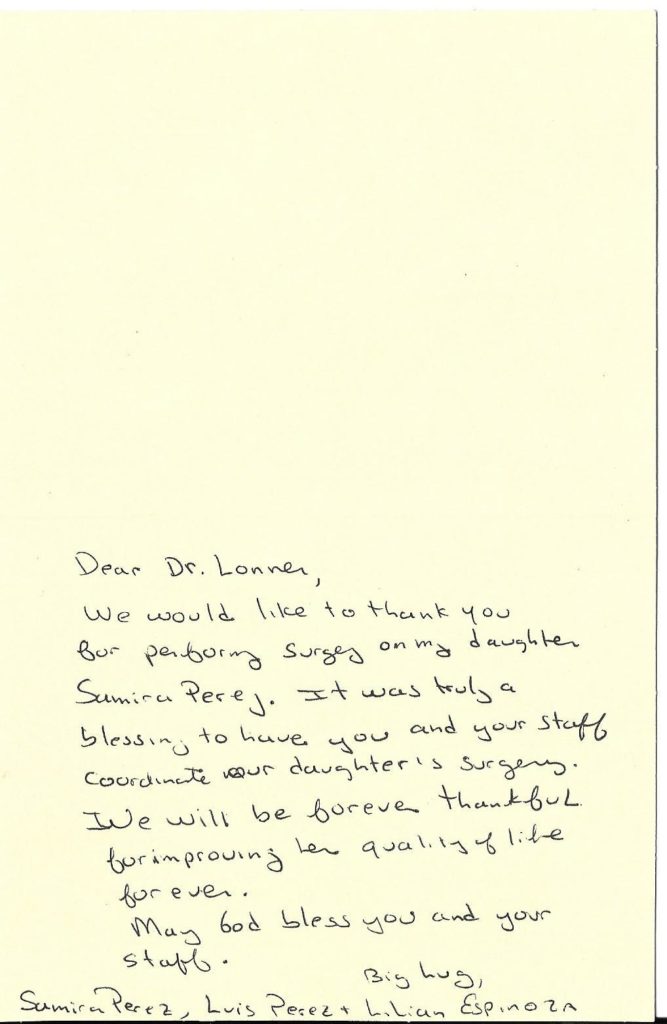 Dear Dr. Lonner,
We would like to thank you
for performing surgery on my daughter
Samira Perez. It was truly a
blessing to have you and your staff
coordinate our daughter's surgery.
We will be forever thankful
for improving her quality of life
forever.
May God bless you and your
staff.
Big hug,
Samira Perez, Luis Perez + Lilian Espinoza